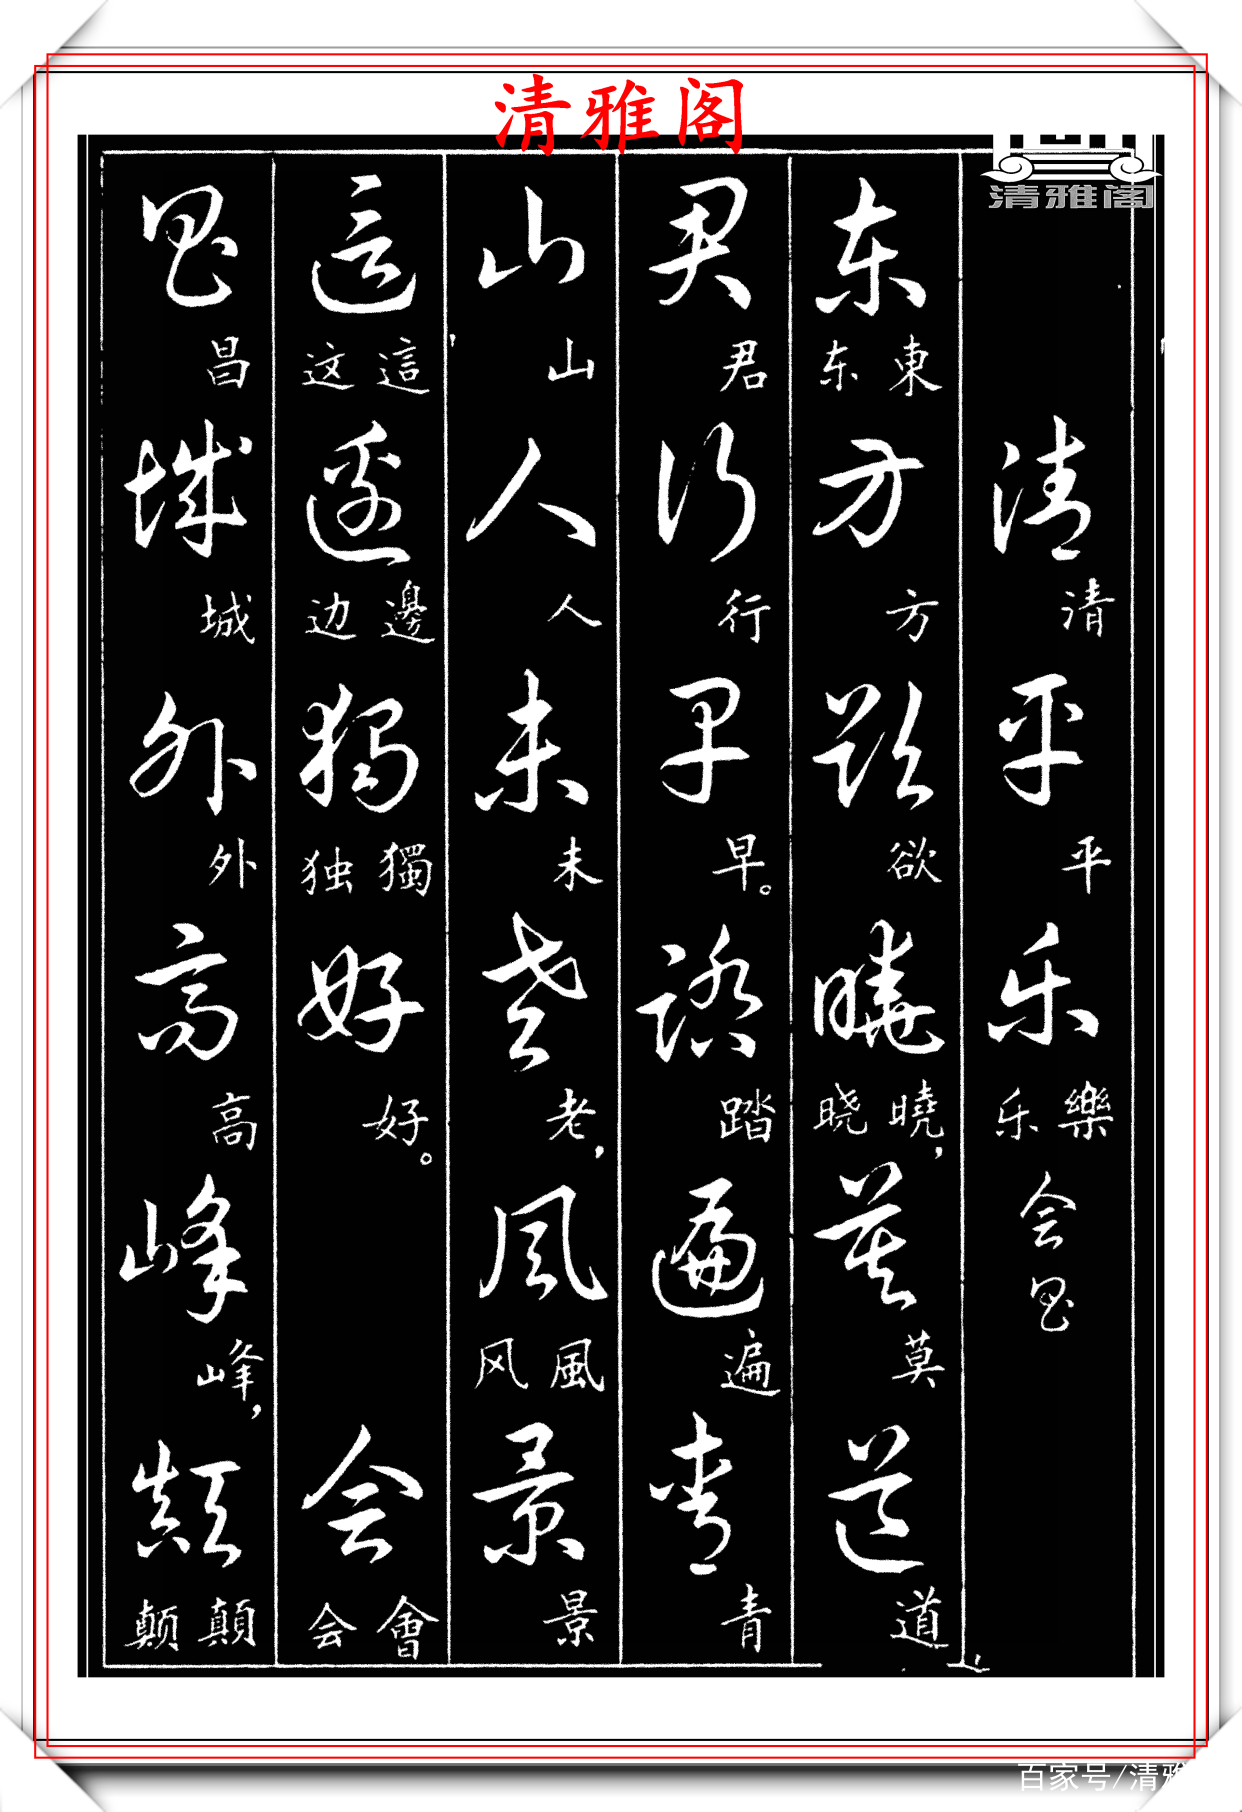 清雅阁
清雅阁
清清平平乐樂乐会昌
东東东方方欲欲晓曉晓,莫莫道道
君君行行早早。踏踏遍遍青青
山山人人未未老老,风風风景景
这這这边邊边独獨独好好。会會会
昌昌城城外外高高峰峰,颠顛颠
百家号/清雅